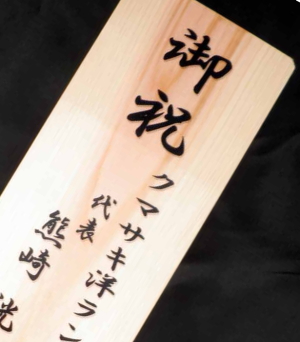 御祝
クマサキ洋ラン
代表
熊崎